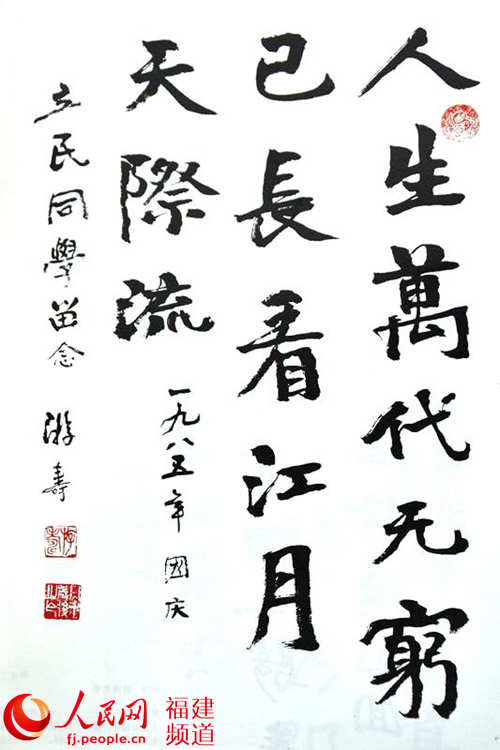 人生萬代无窮
已長看江月
天際流
一九八五年國庆
立民同學留念 游寿
人民网
fj.people.cn
福建
频道